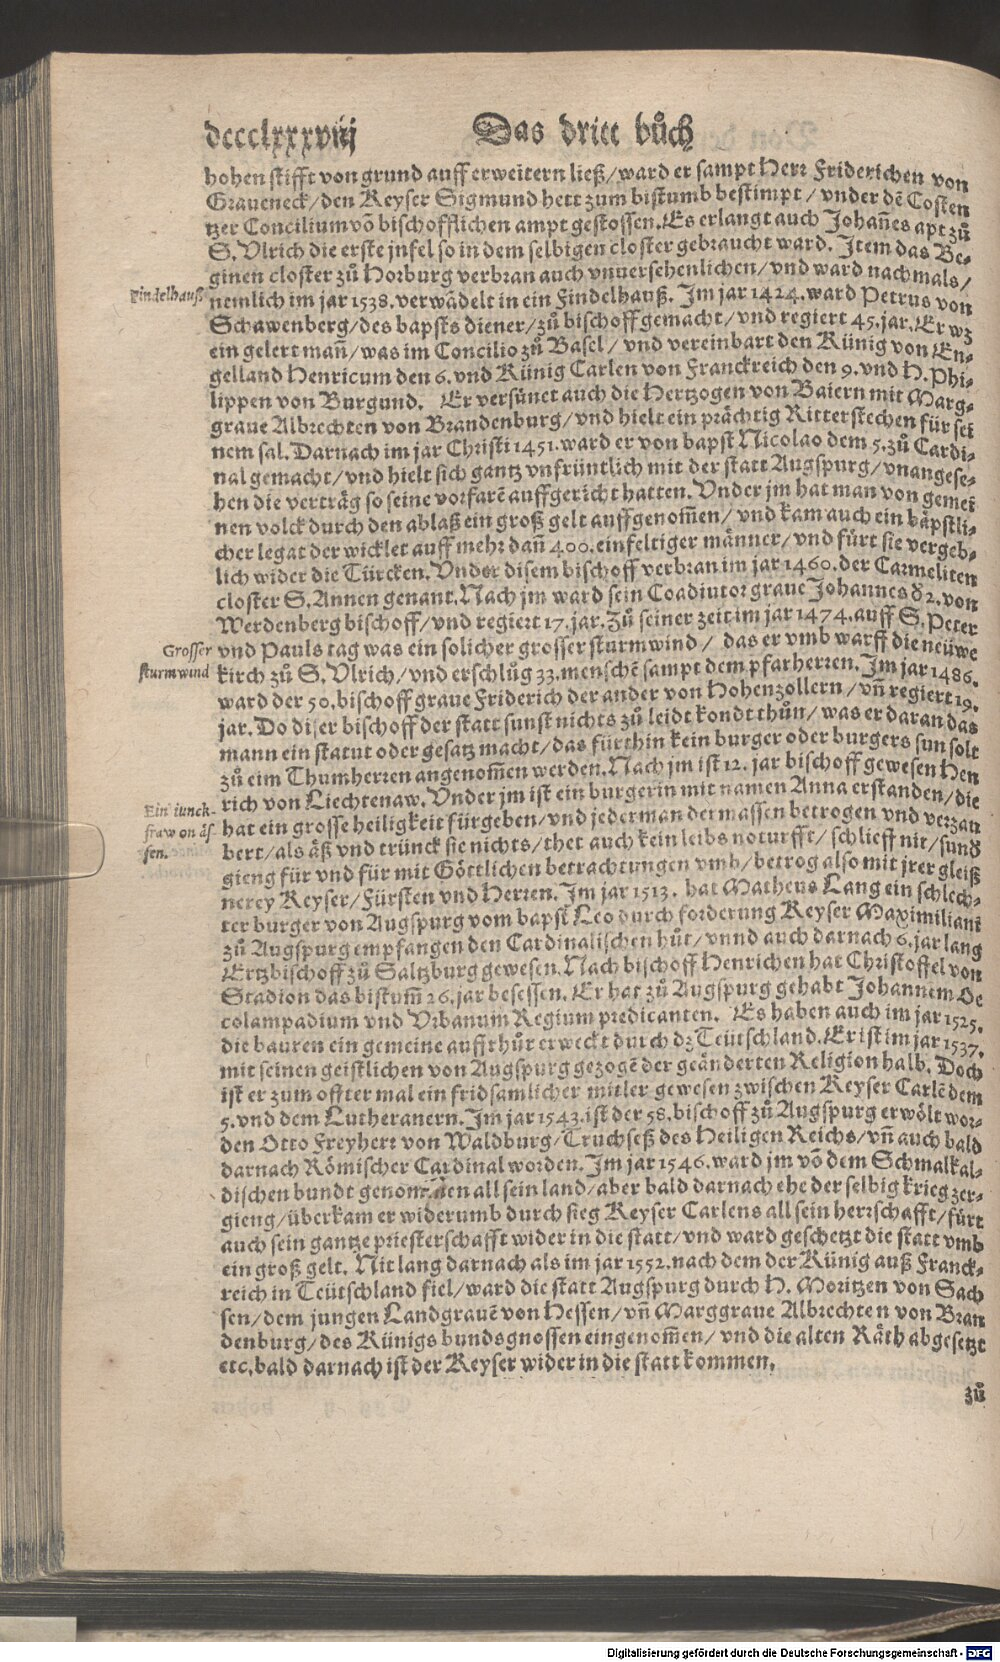 dcccclxxxviij Das dritt bůch
hohen stifft von grund auff erweitern ließ/ward er sampt Herr Friderichen von
Graueneck/den Keyser Sigmund hett zum bistumb bestimpt/vnder dē Costen
tzer Concilium vō bischofflichen ampt gestossen. Es erlangt auch Johañes apt zů
S. Vlrich die erste jnfel so in dem selbigen closter gebraucht ward. Item das Be-
ginen closter zů Horburg verbran auch vnuersehenlichen/vnd ward nachmals/
Findelhauß nemlich im jar 1538. verwādelt in ein Findelhauß. Im jar 1424. ward Petrus von
Schawenberg/des bapsts diener/zů bischoff gemacht/vnd regiert 45. jar. Er wz
ein gelert mañ/was im Concilio zů Basel/vnd vereinbart den Künig von En-
gelland Henricum den 6. vnd Künig Carlen von Franckreich den 9. vnd H. Phi-
lippen von Burgund. Er versünet auch die Hertzogen von Baiern mit Marg-
graue Albrechten von Brandenburg/vnd hielt ein prächtig Ritterstechen für sei
nem sal. Darnach im jar Christi 1451. ward er von bapst Nicolao dem 5. zů Cardi-
nal gemacht/vnd hielt sich gantz vnfrüntlich mit der statt Augspurg/vnangese-
hen die verträg so seine vorfarē auffgericht hatten. Vnder jm hat man von gemei
nen volck durch den ablaß ein groß gelt auffgenom̄en/vnd kam auch ein bäpstli-
cher legat der wicklet auff mehr dañ 400. einfeltiger männer/vnd fürt sie vergeb-
lich wider die Türcken. Vnder disem bischoff verbran im jar 1460. der Carmeliten
closter S. Annen genant. Nach jm ward sein Coadiutor graue Johannes d̕ 2. von
Werdenberg bischoff/vnd regiert 17. jar. Zů seiner zeit im jar 1474. auff S. Peter
Grosser sturmwind vnd Pauls tag was ein solicher grosser sturmwind/ das er vmb warff die neüwe
kirch zů S. Vlrich/vnd erschlůg 33. menschē sampt dem pfarherren. Im jar 1486.
ward der 50. bischoff graue Friderich der ander von Hohenzollern/vñ regiert 19.
jar. Do diser bischoff der statt sunst nichts zů leidt kondt thůn/was er daran das
mann ein statut oder gesatz macht/das fürthin kein burger oder burgers sun solt
zů eim Thumherren angenom̄en werden. Nach jm ist 12. jar bischoff gewesen Hen
rich von Liechtenaw. Vnder jm ist ein burgerin mit namen Anna erstanden/die
Ein iunckfraw on äs sen. hat ein grosse heiligkeit fürgeben/vnd jederman dermassen betrogen vnd verzau
bert/als äß vnd trünck sie nichts/thet auch kein leibs noturfft/schlieff nit/sund̕
gieng für vnd für mit Göttlichen betrachtungen vmb/betrog also mit jrer gleiß
nerey Keyser/Fürsten vnd Herren. Im jar 1513. hat Matheus Lang ein schlech-
ter burger von Augspurg vom bapst Leo durch forderung Keyser Maximilians
zů Augspurg empfangen den Cardinalischen hůt/vnnd auch darnach 6. jar lang
Ertzbischoff zů Saltzburg gewesen. Nach bischoff Henrichen hat Christoffel von
Stadion das bistum̄ 26. jar besessen. Er hat zů Augspurg gehabt Johannem Oe
colampadium vnd Vrbanum Regium predicanten. Es haben auch im jar 1525.
die bauren ein gemeine auffrhůr erweckt durch dz Teütschland. Er ist im jar 1537.
mit seinen geistlichen von Augspurg gezogē der geänderten Religion halb. Doch
ist er zum offter mal ein fridsamlicher mitler gewesen zwischen Keyser Carlē dem
5. vnd dem Lutheranern. Im jar 1543. ist der 58. bischoff zů Augspurg erwölt wor-
den Otto Freyherr von Waldburg/Truchseß des Heiligen Reichs/vñ auch bald
darnach Römischer Cardinal worden. Im jar 1546. ward jm vō dem Schmalkal-
dischen bundt genommen all sein land/aber bald darnach ehe der selbig krieg zer-
gieng/überkam er widerumb durch sieg Keyser Carlens all sein herrschafft/fürt
auch sein gantze priesterschafft wider in die statt/vnd ward geschetzt die statt vmb
ein groß gelt. Nit lang darnach als im jar 1552. nach dem der Künig auß Franck-
reich in Teütschland fiel/ward die statt Augspurg durch H. Moritzen von Sach
sen/dem jungen Landgrauē von Hessen/vñ Marggraue Albrechten von Bran
denburg/des Künigs bundsgnossen eingenom̄en/vnd die alten Räth abgesetzt
etc. bald darnach ist der Keyser wider in die statt kommen.
zů
Digitalisierung gefördert durch die Deutsche Forschungsgemeinschaft - DFG